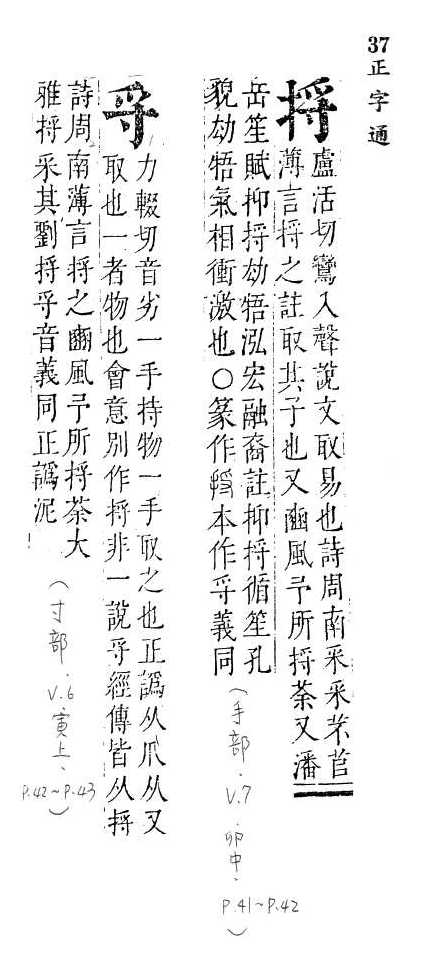 37正字通
捋
盧活切鸞入聲說文取易也詩周南采采芣苢
薄言捋之註取其子也又豳風予所捋荼又潘
岳笙賦抑捋劫牾泓宏融裔註抑捋循笙孔
貌劫牾氣相衝激也○篆作捋本作寽義同
(手部.V.7卯中.
P.41~P.42)
寽
力輟切音劣一手持物一手取之也正譌从爪从又
取也一者物也會意別作捋非一說寽經傳皆从捋
詩周南薄言捋之豳風予所捋荼大
雅捋采其劉捋寽音義同正譌泥
(寸部.V.6寅上.
P.42~P.43)